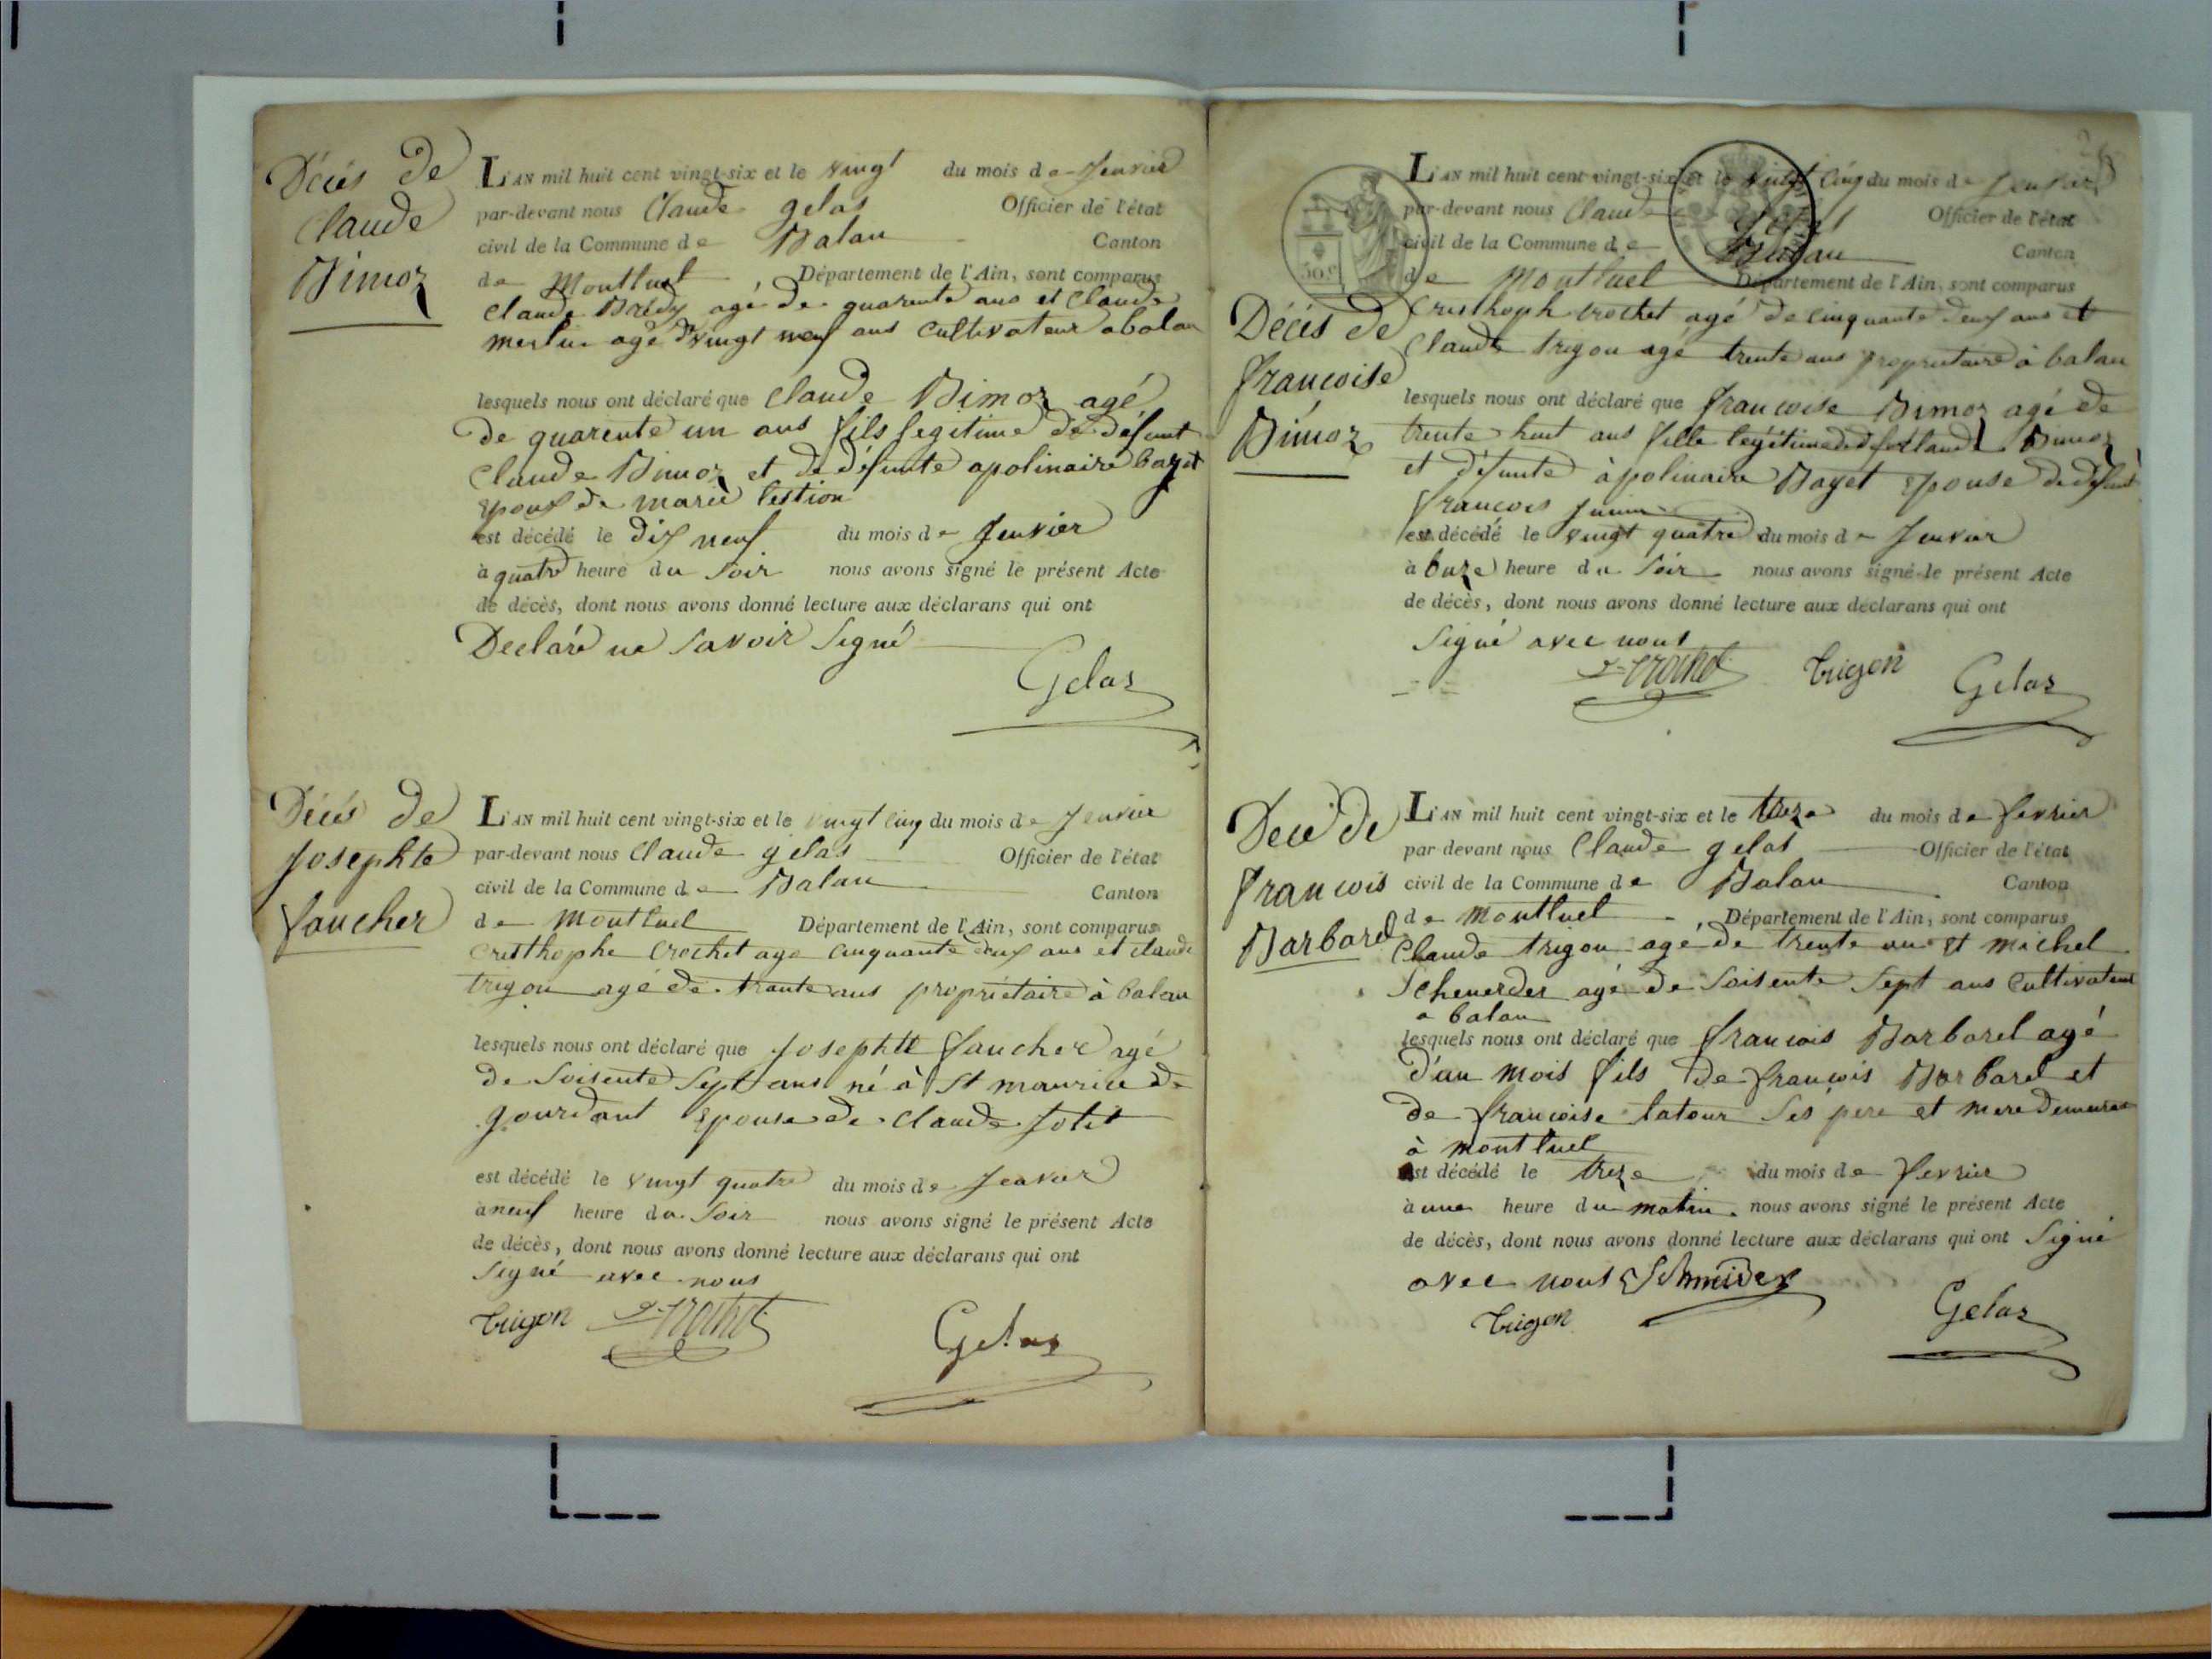 Décès de
Claude
Bimoz
L'AN mil huit cent vingt-six et le vingt du mois de Jenvier
par-devant nous Claude gelas Officier de l'état
civil de la Commune de Balan Canton
de Montluel, Département de l'Ain, sont comparus
Claude agé de quarente ans et Claude
merlin agé d vingt neuf ans Cultivateur a balan
lesquels nous ont déclaré que Claude Bimoz agé
de quarente un ans fils legitime de défunt
Claude Bimoz et de défunte apolinaire bayet
Epoux de marie lestion
est décédé le dix neuf du mois de Jenvier
à quatre heure du Soir nous avons signé le présent Acte
de décès, dont nous avons donné lecture aux déclarans qui ont
Declaré ne savoir Signé
Gelas
Décés de
Josephte
faucher
L'AN mil huit cent vingt-six et le vingt cinq du mois de Jenvier
par-devant nous Claude gelas Officier de l'état
civil de la Commune de Balan Canton
de Montluel Département de l'Ain, sont comparus
cristhophe Crochet age cinquante deux ans et claude
trigon agé de trante ans propriétaire à balan
lesquels nous ont déclaré que Josephte faucher agé
de Soisente Sept ans né à St maurice de
gourdant Epouse de Claude Jolit
est décédé le vingt quatre du mois de Jenvier
à neuf heure du Soir nous avons signé le présent Acte
de décès, dont nous avons donné lecture aux déclarans qui ont
Signé avec nous
Trigon Crochet Gelas
50 c
L'AN mil huit cent vingt-six et le vingt cinq du mois de Jenvier
par-devant nous Claude gelas Officier de l'état
civil de la Commune de Balan Canton
de Montluel Département de l'Ain, sont comparus
Décès de
francoise
Bimoz
Cristhoph crochet agé de cinquante deux ans et
Claude trigon agé trente ans propriétaire à balan
lesquels nous ont déclaré que francoise Bimoz agé de
trente huit ans fille legitime de Claude Bimoz
et défunte àpolinaire Bayet Epouse de défunt
francois
est décédé le vingt quatre du mois de Jenvier
à heure du Soir nous avons signé le présent Acte
de décès, dont nous avons donné lecture aux déclarans qui ont
Signé avec nous
Crochet Trigon Gelas
Decé de
francois
Barbarel
L'AN mil huit cent vingt-six et le treze du mois de fevrier
par-devant nous Claude gelas Officier de l'état
civil de la Commune de Balan Canton
de Montluel, Département de l'Ain, sont comparus
Claude trigon agé de trente ans et michel
Schenerder agé de Soisente Sept ans Cultivateur
a balan
lesquels nous ont déclaré que francois Barbarel agé
d'un mois fils de francois Barbarel et
de francoise latour Ses pere et mere demeurant
à montluel
est décédé le treze du mois de fevrier
à une heure du matin nous avons signé le présent Acte
de décès, dont nous avons donné lecture aux déclarans qui ont Signé
avec nous Schmider
Trigon Gelas